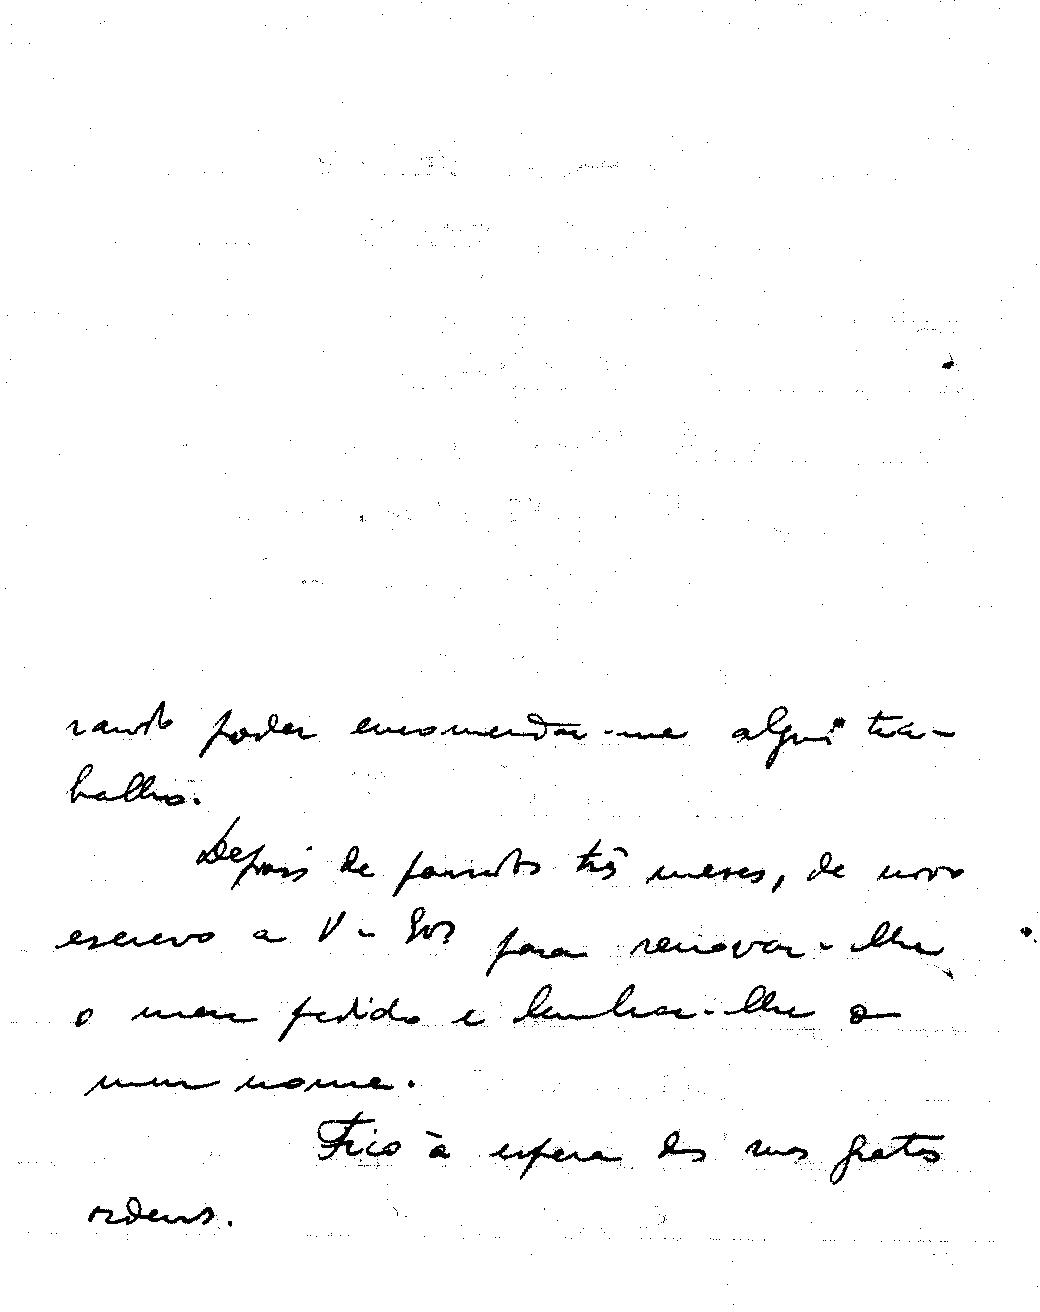 rando poder encomendar-me algum tra-
balho.
Depois de passados três meses, de novo
escrevo a V- para renovar-lhe
o meu pedido e lembrar-lhe o
meu nome.
Fico à espera das suas gratas
ordens.